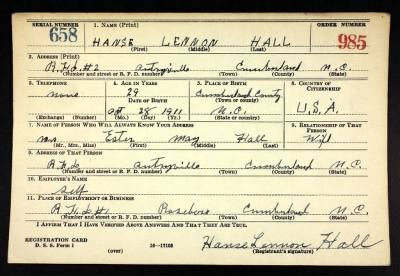 SERIAL NUMBER 1. NAME (Print) ORDER NUMBER
658 HANSE LENNON HALL 985
(First) (Middle) (Last)
2. ADDRESS (Print)
R.F.D. #2 Autryville Cumberland N.C.
(Number and street or R. F. D. number) (Town) (County) (State)
3. TELEPHONE 4. AGE IN YEARS 5. PLACE OF BIRTH 6. COUNTRY OF CITIZENSHIP
none 29 Cumberland County
DATE OF BIRTH (Town or county)
Oct 28 1911 N.C. U.S.A.
(Exchange) (Number) (Mo.) (Day) (Yr.) (State or country)
7. NAME OF PERSON WHO WILL ALWAYS KNOW YOUR ADDRESS 8. RELATIONSHIP OF THAT PERSON
Mrs Ester May Hall Wife
(Mr., Mrs., Miss) (First) (Middle) (Last)
9. ADDRESS OF THAT PERSON
R.F.D. Autryville Cumberland N.C.
(Number and street or R. F. D. number) (Town) (County) (State)
10. EMPLOYER'S NAME
Self
11. PLACE OF EMPLOYMENT OR BUSINESS
R.F.D #1 Roseboro Cumberland N.C.
(Number and street or R. F. D. number) (Town) (County) (State)
I AFFIRM THAT I HAVE VERIFIED ABOVE ANSWERS AND THAT THEY ARE TRUE.
REGISTRATION CARD
D. S. S. Form 1 (over) 16—17105 Hanse Lennon Hall
(Registrant's signature)